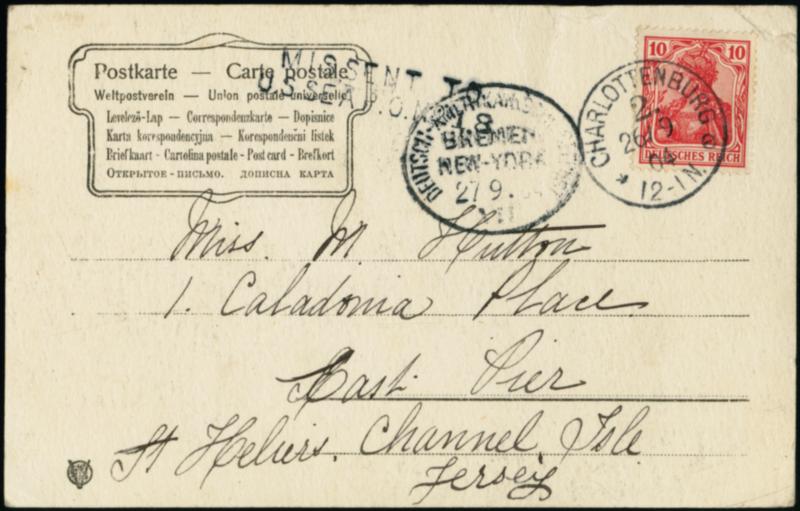 Postkarte — Carte postale
Weltpostverein — Union postale universelle
Levelező-Lap — Correspondenzkarte — Dopisnice
Karta korespondencyjna — Korespondenční lístek
Briefkaart - Cartolina postale - Post card - Brefkort
Открытое - письмо. дописна карта
MISSENT TO
10
10
DEUTSCHES REICH
CHARLOTTENBURG
2
26 9 04
12-1 N.
e
78
BREMEN
NEW-YORK
27 9. 04
VII
Miss. M. Hutton
1. Caladonia Place
East Pier
St Heliers. Channel Isle
Jersey